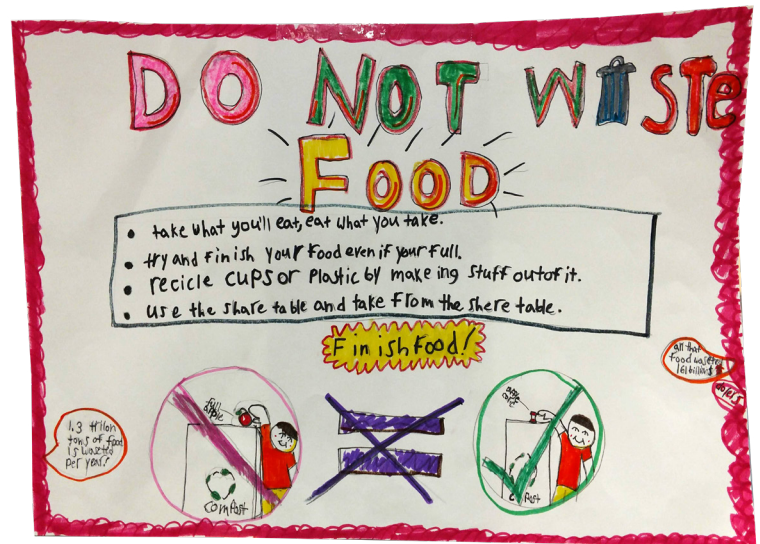 DO NOT WASTe
FOOD
• take what you'll eat, eat what you take.
• try and finish your food even if your full.
• recicle cups or plastic by making stuff out of it.
• use the share table and take from the shere table.
Finish Food!
all that
food
161 billion $
1.3 trilon
tons of food
is
per year!
full
apple
compost
apple